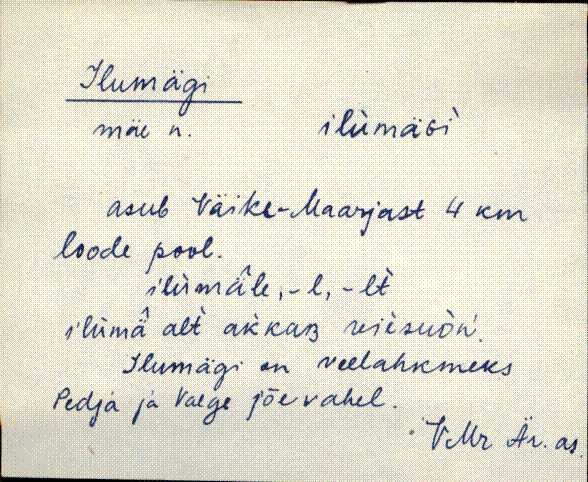 Ilumägi
mäe n. ilùmäGi
asub Väike-Maarjast 4 km
loode pool.
ilùmä̂le, -l, -lt̀
ilùmä̂ alt̀ akkaB
Ilumägi on veelahkmeks
Pedja ja Valge jõe vahel.
VMr Är. as.